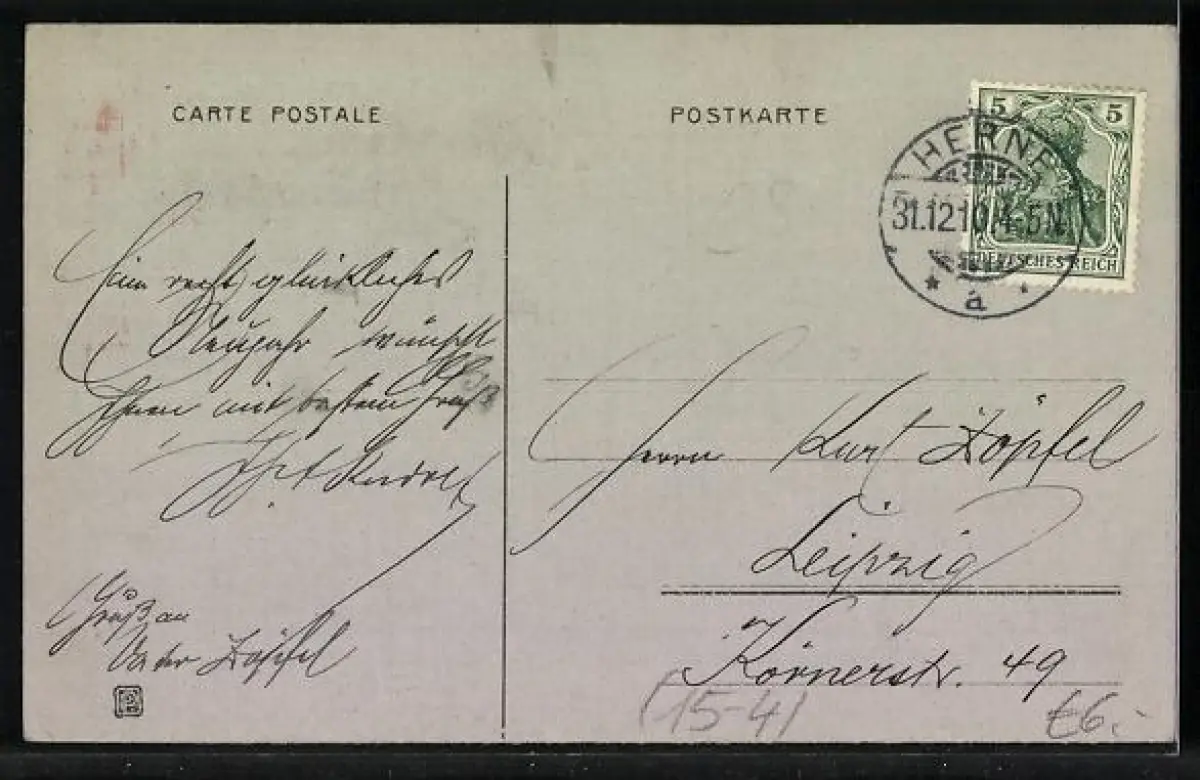 CARTE POSTALE
POSTKARTE
5 5
HERNE
31.12.10.4-5N.
* a *
DEUTSCHES REICH
Ein recht glückliches
Neujahr wünscht
Ihnen mit bestem Gruß
Rudolf
Gruß an
Vater Zöpfel
Herrn Kurt Zöpfel
Leipzig
Körnerstr. 49
(15-4)
€6.-